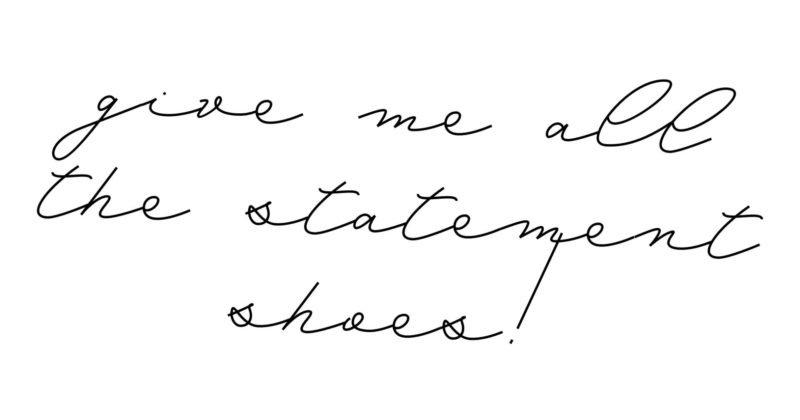 give me all
the statement
shoes!